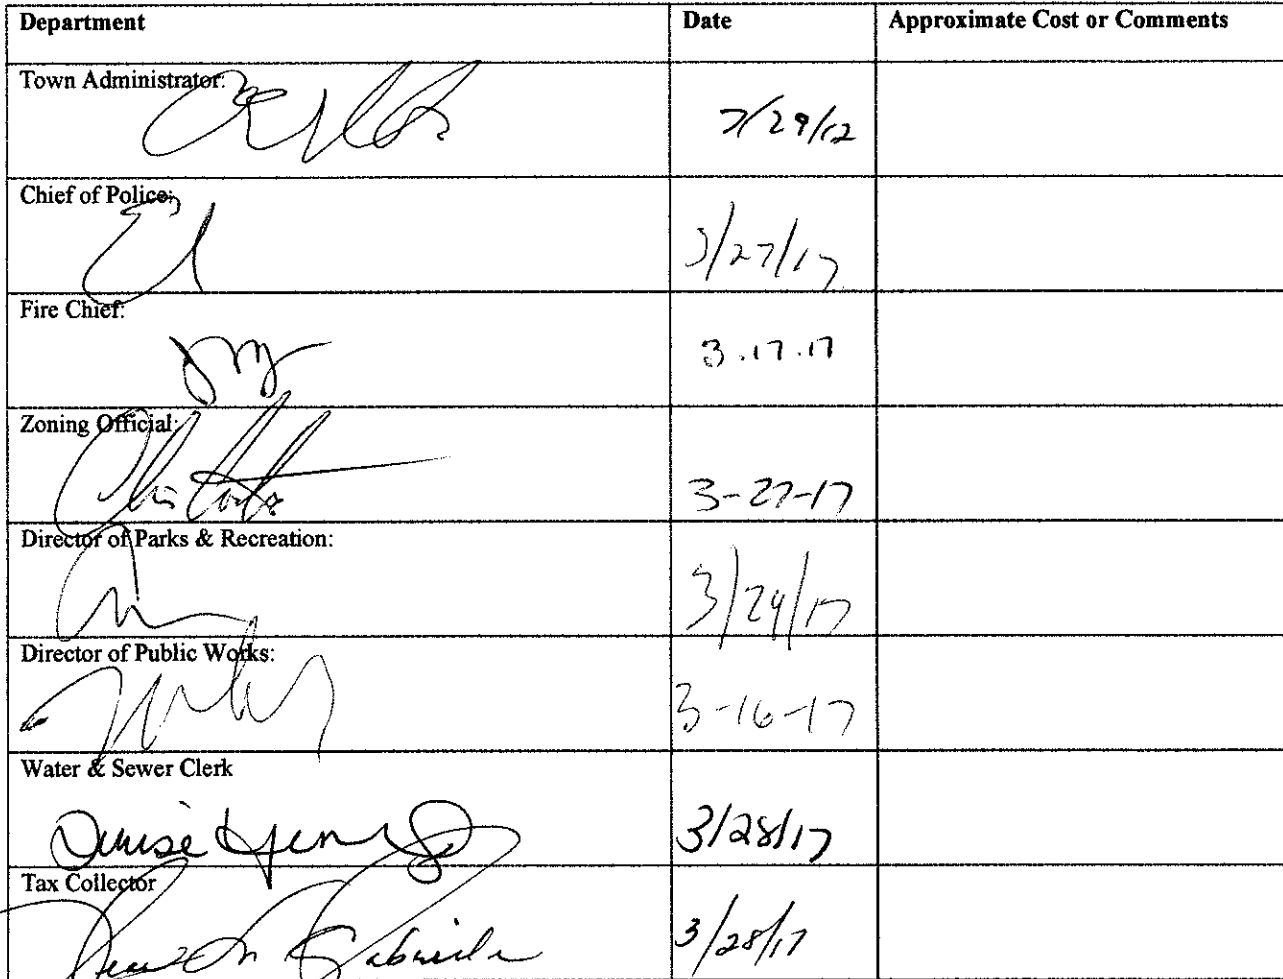 Department Date Approximate Cost or Comments
Town Administrator:
Chief of Police: 3/27/17
Fire Chief: 3.17.17
Zoning Official: 3-27-17
Director of Parks & Recreation: 3/29/17
Director of Public Works: 3-16-17
Water & Sewer Clerk
Denise 3/28/17
Tax Collector
3/28/17